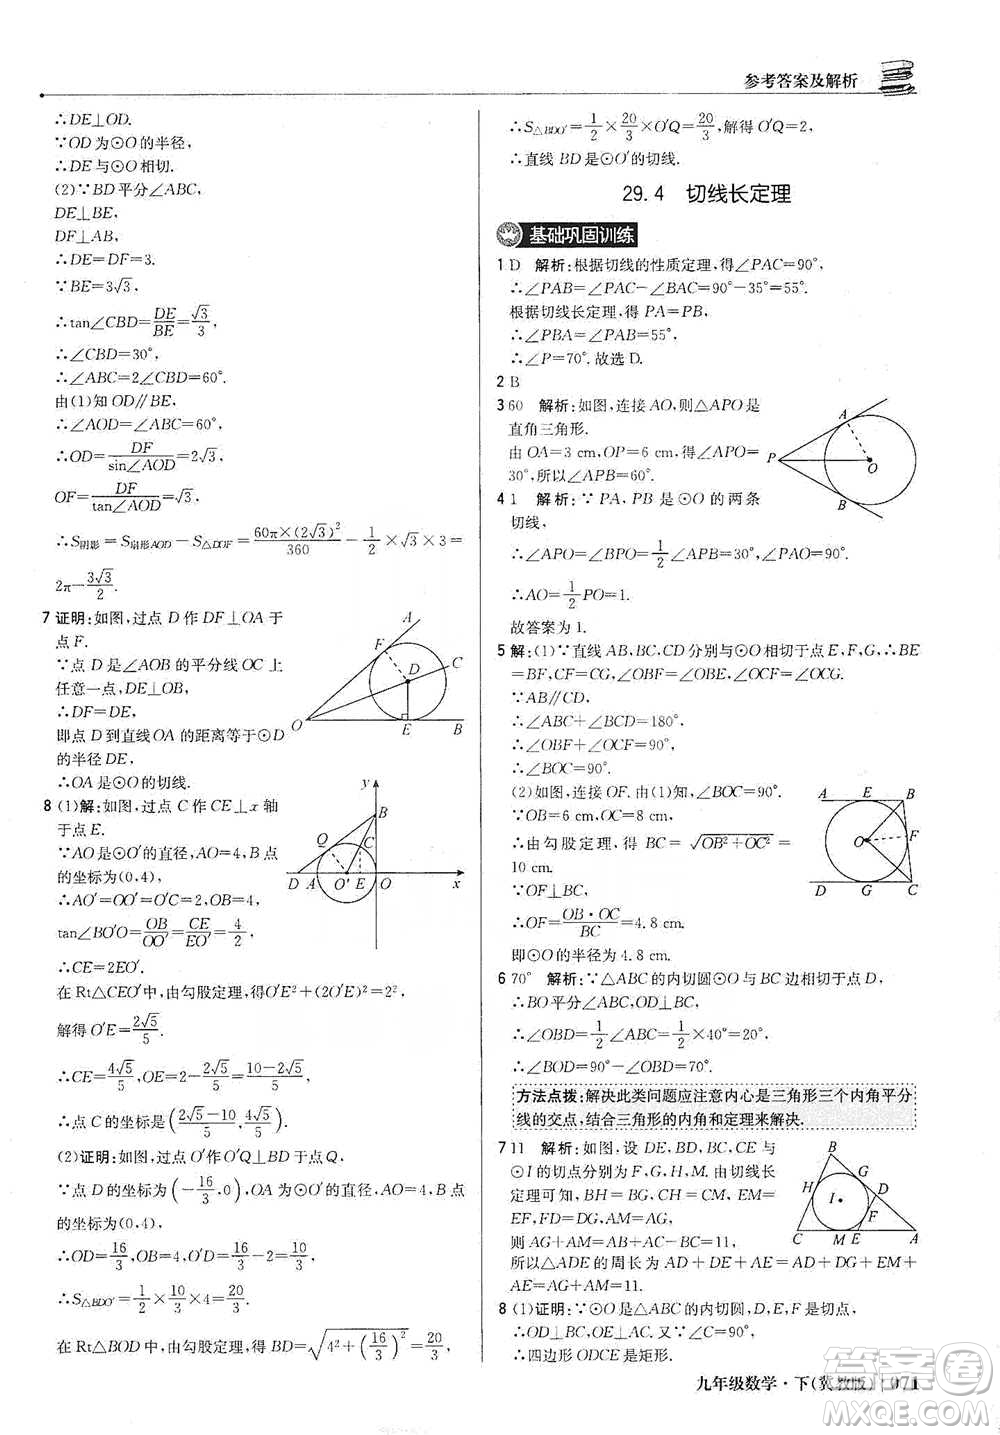 参考答案及解析
∴DE⊥OD.
∵OD为⊙O的半径,
∴DE与⊙O相切.
(2)∵BD平分∠ABC,
DE⊥BE,
DF⊥AB,
∴DE=DF=3.
∵BE=3√3,
∴tan∠CBD=DE/BE=√3/3,
∴∠CBD=30°,
∴∠ABC=2∠CBD=60°.
由(1)知OD∥BE,
∴∠AOD=∠ABC=60°.
∴OD=DF/sin∠AOD=2√3,
OF=DF/tan∠AOD=√3.
∴S阴影=S扇形AOD-S△DOF=60π×(2√3)²/360-1/2×√3×3=
2π-3√3/2.
7 证明:如图,过点D作DF⊥OA于
点F.
∵点D是∠AOB的平分线OC上
任意一点,DE⊥OB,
∴DF=DE,
即点D到直线OA的距离等于⊙D
的半径DE,
∴OA是⊙D的切线.
A F D C O E B
8 (1)解:如图,过点C作CE⊥x轴
于点E.
∵AO是⊙O′的直径,AO=4,B点
的坐标为(0,4),
∴AO′=OO′=O′C=2,
tan∠BO′O=OB/OO′=CE/EO′=4/2,
∴CE=2EO′.
在Rt△CEO′中,由勾股定理,得O′E²+(2O′E)²=2²,
解得O′E=2√5/5.
∴CE=4√5/5,OE=2-2√5/5=10-2√5/5,
∴点C的坐标为(2√5-10/5,4√5/5).
y B Q C D A O′ E O x
(2)证明:如图,过点O′作O′Q⊥BD于点Q.
∵点D的坐标为(-16/3,0),OA为⊙O′的直径,B点
的坐标为(0,4),
∴OD=16/3,OB=4,O′D=16/3-2=10/3,
∴S△BDO′=1/2×10/3×4=20/3.
在Rt△BOD中,由勾股定理,得BD=√(4²+(16/3)²)=20/3,
∴S△BDO′=1/2×20/3×O′Q=20/3,解得O′Q=2,
∴直线BD是⊙O′的切线.
29.4 切线长定理
基础巩固训练
1 D 解析:根据切线的性质定理,得∠PAC=90°,
∴∠PAB=∠PAC-∠BAC=90°-35°=55°.
根据切线长定理,得PA=PB,
∴∠PBA=∠PAB=55°,
∴∠P=70°.故选D.
2 B
3 60 解析:如图,连接AO,则△APO是
直角三角形.
由OA=3 cm,OP=6 cm,得∠APO=
30°,所以∠APB=60°.
A P O B
4 1 解析:∵PA,PB是⊙O的两条
切线,
∴∠APO=∠BPO=1/2∠APB=30°,∠PAO=90°.
∴AO=1/2PO=1.
故答案为1.
5 解:(1)∵直线AB,BC,CD分别与⊙O相切于点E,F,G,∴BE
=BF,CF=CG,∠OBF=∠OBE,∠OCF=∠OCG.
∵AB∥CD,
∴∠ABC+∠BCD=180°,
∴∠OBF+∠OCF=90°,
∴∠BOC=90°.
(2)如图,由(1)知,∠BOC=90°.
∵OB=6 cm,OC=8 cm,
∴由勾股定理,得BC=√OB²+OC²=
10 cm.
∵OF⊥BC,
∴OF=OB·OC/BC=4.8 cm.
即⊙O的半径为4.8 cm.
A E B F O D G C
6 70° 解析:∵△ABC的内切圆⊙O与BC边相切于点D,
∴BO平分∠ABC,OD⊥BC,
∴∠OBD=1/2∠ABC=1/2×40°=20°.
∴∠BOD=90°-∠OBD=70°.
方法点拨:解决此类问题应注意内心是三角形三个内角平分
线的交点,结合三角形的内角和定理来解决.
7 11 解析:如图,设DE,BD,BC,CE与
⊙I的切点分别为F,G,H,M,由切线长
定理可知,BH=BG,CH=CM,DG=
DF,EF=EM,AG=AM,
则AG+AM=AB+AC-BC=11,
所以△ADE的周长为AD+DE+AE=AD+DG+EM+
AE=AG+AM=11.
B H G D I F C M E A
8 (1)证明:∵⊙O是△ABC的内切圆,D,E,F是切点,
∴∠ODC=∠OEC=90°.又∵∠C=90°,
∴四边形ODCE是矩形.
九年级数学·下(冀教版) 071
答案圈
MXQE.COM